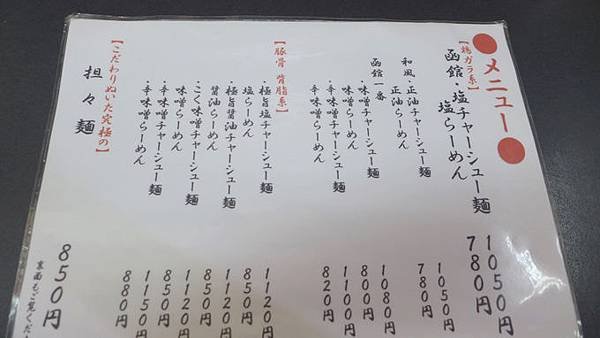 メニュー
【鶏ガラ系】
函館・塩チャーシュー麺 1050円
塩らーめん 780円
和風・正油チャーシュー麺 1050円
正油らーめん 780円
函館一番
・味噌チャーシュー麺 1080円
・味噌らーめん 800円
・辛味噌チャーシュー麺 1100円
・辛味噌らーめん 820円
【豚骨 背脂系】
・極旨塩チャーシュー麺 1120円
塩らーめん 850円
・極旨醤油チャーシュー麺 1120円
醤油らーめん 850円
・こく味噌チャーシュー麺 1120円
味噌らーめん 850円
・辛味噌チャーシュー麺 1150円
・辛味噌らーめん 880円
【こだわりぬいた究極の】
担々麺 850円
裏面もご覧くだ